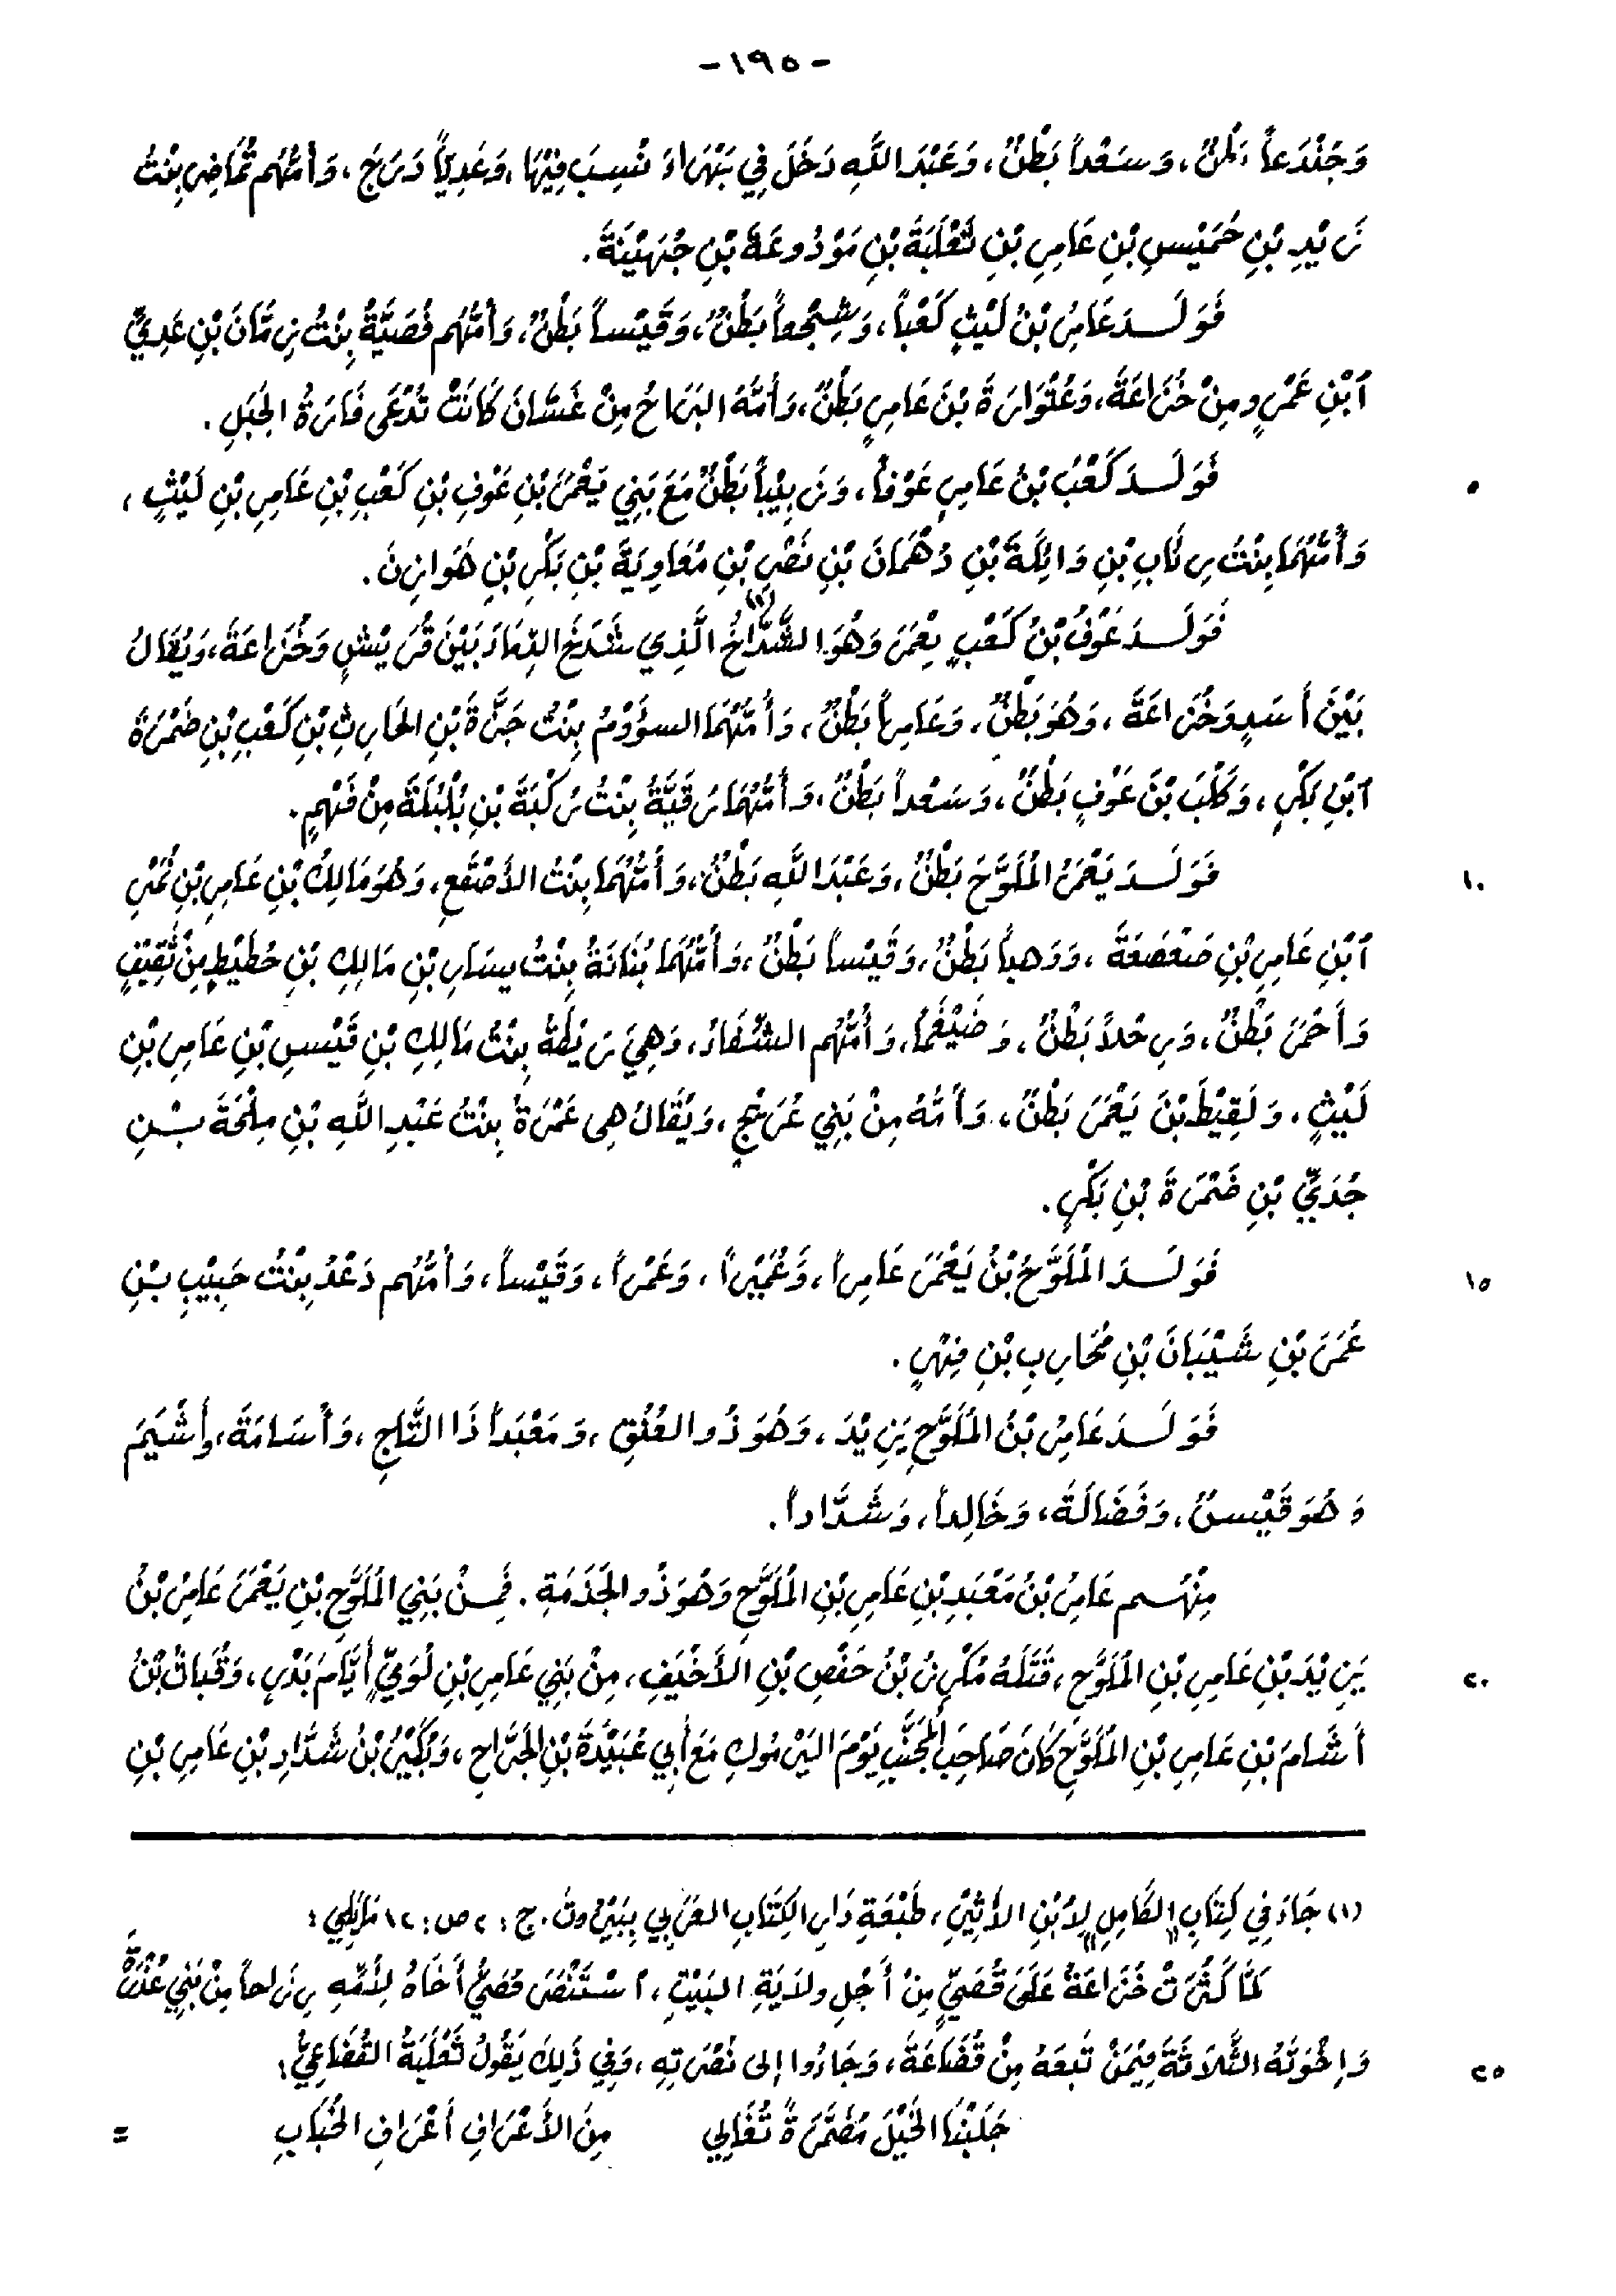 -١٩٥-
وَجُنْدَعاً بَطْنٌ، وَسَعْداً بَطْنٌ، وَعَبْدَ اللَّهِ دَخَلَ فِي بَهْرَاءَ نُسِبَ فِيْهَا، وَعَدِيّاً دَرَجَ، وَأُمُّهُم تُمَاضِرُ بِنْتُ
زَيْدِ بْنِ حُمَيْسِ بْنِ عَامِرِ بْنِ ثَعْلَبَةَ بْنِ مَوْدُوعَةَ بْنِ جُهَيْنَةَ.
فَوَلَدَ عَامِرُ بْنُ لَيْثٍ كَعْباً، وَشِجْعاً بَطْنٌ، وَقَيْساً بَطْنٌ، وَأُمُّهُم قُصَيَّةُ بِنْتُ زِمَّانَ بْنِ عَدِيِّ
ٱبْنِ عَمْرٍو مِنْ خُزَاعَةَ، وَعُتْوَارَةَ بْنَ عَامِرٍ بَطْنٌ، وَأُمُّهُ البَرَاحُ مِنْ غَسَّانَ كَانَتْ تُدْعَى فَارَةُ الجَبَلِ.
فَوَلَدَ كَعْبُ بْنُ عَامِرٍ عَوْفاً، وَزَبِيْباً بَطْنٌ مَعَ بَنِي يَعْمَرَ بْنِ عَوْفِ بْنِ كَعْبِ بْنِ عَامِرِ بْنِ لَيْثٍ،
٥
وَأُمُّهُمَا بِنْتُ رِئَابِ بْنِ وَائِلَةَ بْنِ دُهْمَانَ بْنِ نَصْرِ بْنِ مُعَاوِيَةَ بْنِ بَكْرِ بْنِ هَوَازِنَ.
فَوَلَدَ عَوْفُ بْنُ كَعْبٍ يَعْمَرَ وَهُوَ الشَّدَّاخُ (١) الَّذِي شَدَخَ الدِّمَاءَ بَيْنَ قُرَيْشٍ وَخُزَاعَةَ، وَيُقَالُ
بَيْنَ أَسَدٍ وَخُزَاعَةَ، وَهُوَ بَطْنٌ، وَعَامِراً بَطْنٌ، وَأُمُّهُمَا السؤُوْمُ بِنْتُ جَرَّةَ بْنِ الحَارِثِ بْنِ كَعْبِ بْنِ ضَمْرَةَ
ٱبْنِ بَكْرٍ، وَكَلْبَ بْنَ عَوْفٍ بَطْنٌ، وَسَعْداً بَطْنٌ، وَأُمُّهُمَا رُقَيَّةُ بِنْتُ رُكْبَةَ بْنِ بُلْبُلَةَ مِنْ فَهْمٍ.
فَوَلَدَ يَعْمَرُ المُلَوَّحَ بَطْنٌ، وَعَبْدَ اللَّهِ بَطْنٌ، وَأُمُّهُمَا بِنْتُ الأَصْقَعِ، وَهُوَ مَالِكُ بْنُ عَامِرِ بْنِ نُمَيْرِ
١٠
ٱبْنِ عَامِرِ بْنِ صَعْصَعَةَ، وَوَهباً بَطْنٌ، وَقَيْساً بَطْنٌ، وَأُمُّهُمَا بُنَانَةُ بِنْتُ يسَارِ بْنِ مَالِكِ بْنِ حُطَيْطٍ مِنْ ثَقِيْفٍ
وَأَحْمَرَ بَطْنٌ، وَرِحْلاً بَطْنٌ، وَضَيْغَماً، وَأُمُّهُم الشفَاءُ، وَهِيَ رَيْطَةُ بِنْتُ مَالِكِ بْنِ قَيْسِ بْنِ عَامِرِ بْنِ
لَيْثٍ، وَلَقِيْطَ بْنَ يَعْمَرَ بَطْنٌ، وَأُمُّهُ مِنْ بَنِي عُرَيْجٍ، وَيُقَالُ هِى عَمْرَةُ بِنْتُ عَبْدِ اللَّهِ بْنِ مِلْحَةَ بْنِ
جُدَيِّ بْنِ ضَمْرَةَ بْنِ بَكْرٍ.
فَوَلَدَ المُلَوَّحُ بْنُ يَعْمَرَ عَامِراً، وَعُمَيْراً، وَعَمْراً، وَقَيْساً، وَأُمُّهُم دَعْدُ بِنْتُ حَبِيْبِ بْنِ
١٥
عَمَرَ بْنِ شَيْبَانَ بْنِ مُحَارِبِ بْنِ فِهْرٍ.
فَوَلَدَ عَامِرُ بْنُ المُلَوَّحِ يَزِيْدَ، وَهُوَ ذُو العُنُقِ، وَمَعْبَداً ذَا التَّاجِ، وَأُسَامَةَ، وأَشْيَمَ
وَهُوَ قَيْسٌ، وَفَضَالَةَ، وَخَالِداً، وَشَدَّاداً.
مِنْهُم عَامِرُ بْنُ مَعْبَدِ بْنِ عَامِرِ بْنِ المُلَوَّحِ وَهُوَ ذُو الجَذَمَةِ. فَمِنْ بَنِي المُلَوَّحِ بْنِ يَعْمَرَ عَامِرُ بْنُ
يَزِيْدَ بْنِ عَامِرِ بْنِ المُلَوَّحِ، قَتَلَهُ مُكْرِزُ بْنُ حَفْصِ بْنِ الأَخْيَفِ، مِنْ بَنِي عَامِرِ بْنِ لُوَيٍّ أَيَّامَ بَدْرٍ، وَقُبَاثُ بْنُ
٢٠
أَشَامَ بْنِ عَامِرِ بْنِ المُلَوَّحِ كَانَ صَاحِبَ المُجَنَّبِ يَوْمَ اليَرْمُوكِ مَعَ أَبِي عُبَيْدَةَ بْنِ الجَرَّاحِ، وَبُكَيْرُ بْنُ شَدَّادِ بْنِ عَامِرِ بْنِ
(١) جَاءَ فِي كِتَابِ "الكَامِلِ" لِابْنِ الأَثِيْرِ، طَبْعَةِ دَارِ الكِتَابِ العَرَبِي بِبَيْرُوتَ. ج: ٢ ص: ١٢ مَايَلِي:
لَمَّا كَثُرَتْ خُزَاعَةُ عَلَى قُصَيٍّ مِنْ أَجْلِ ولاَيَةِ البَيْتِ، اسْتَنْصَرَ قُصَيُّ أَخَاهُ لِأُمِّهِ رِزَاحاً مِنْ بَنِي عُذْرَةَ
وَإِخْوَتَهُ الثَّلَاثَةَ فِيْمَنْ تَبِعَهُ مِنْ قُضَاعَةَ، وَجَاءُوا إلى نُصْرَتِهِ، وَفِي ذَلِكَ يَقُولُ ثَعْلَبَةُ القُضَاعِيُّ:
٢٥
جَلَبْنَا الخَيْلَ مُضَمَّرَةً تُغَالِي مِنَ الأَعْرَافِ أَعْرَافِ الجَنَابِ =